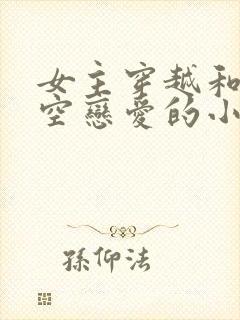 女主穿越和
空戀愛的小
孫仰法